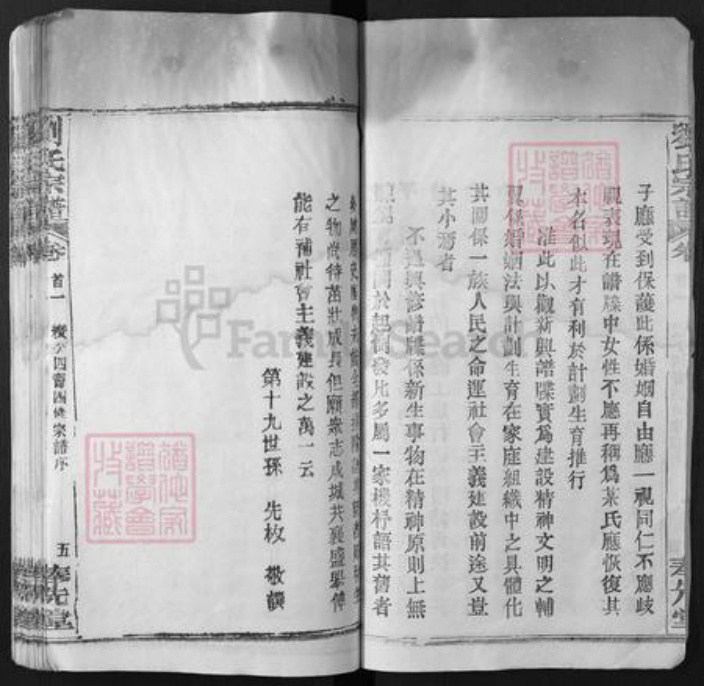 劉氏宗譜
子應受到保護此係婚姻自由應一視同仁不應歧
視表現在譜牒中女性不應再稱爲某氏應恢復其
本名似此才有利於計劃生育推行
准此以觀新興譜牒實爲建設精神文明之輔
翼係婚姻法與計劃生育在家庭組織中之具體化
其關係一族人民之命運社會主義建設前途又豈
其小焉者
不過興修譜牒係新生事物在精神原則上無
於起例發凡多屬一家機杼語其舊者
之物尚待茁壯成長但願衆志成城共襄盛舉俾
能有補社會主義建設之萬一云
第十九世孫 先枚 敬撰
劉氏宗譜
卷首一
宗譜序
五
奉先堂
FamilySearch